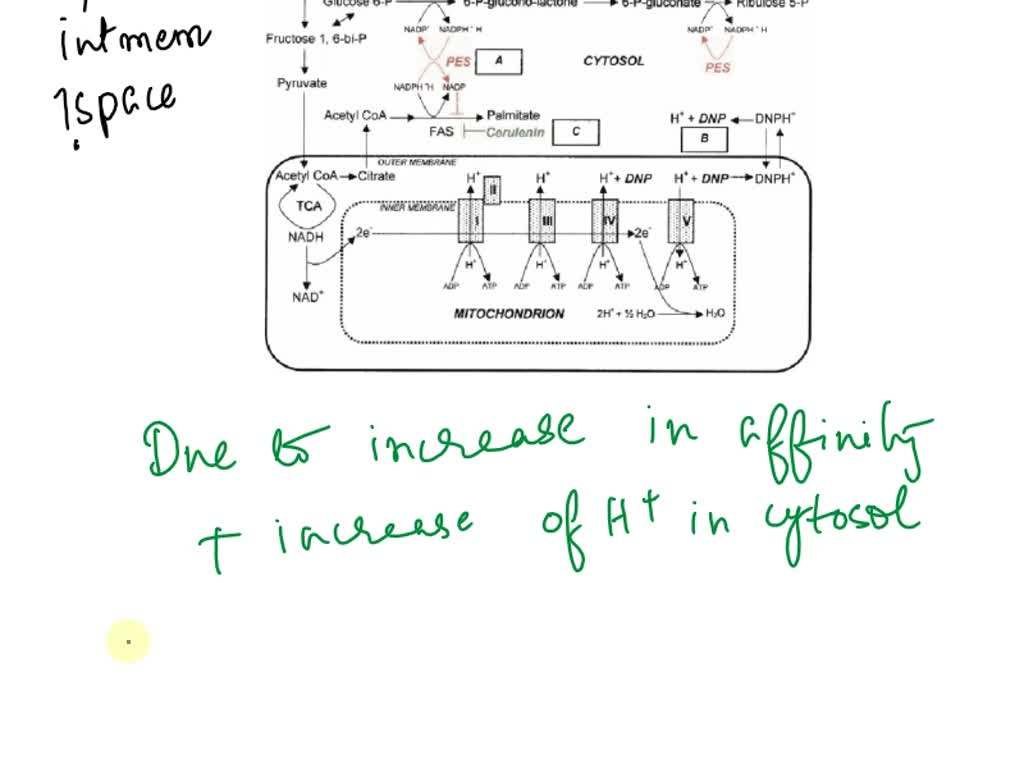 Glucose 6-P 6-P-glucono-lactone 6-P-gluconate Ribulose 5-P
int mem
space
NADP⁺ NADPH⁺H NADP⁺ NADPH⁺H
Fructose 1, 6-bi-P
PES A CYTOSOL PES
Pyruvate
NADPH⁺H NADP
Acetyl CoA Palmitate H⁺ + DNP DNPH⁺
FAS Cerulenin C B
OUTER MEMBRANE
Acetyl CoA Citrate H⁺ II H⁺ H⁺ + DNP H⁺ + DNP DNPH⁺
TCA INNER MEMBRANE I III IV V
NADH 2e⁻ 2e⁻
H⁺ H⁺ H⁺ H⁺
ADP ATP ADP ATP ADP ATP ADP ATP
NAD⁺
MITOCHONDRION 2H⁺ + ½ H₂O H₂O
Due to increase in affinity
+ increase of H⁺ in cytosol